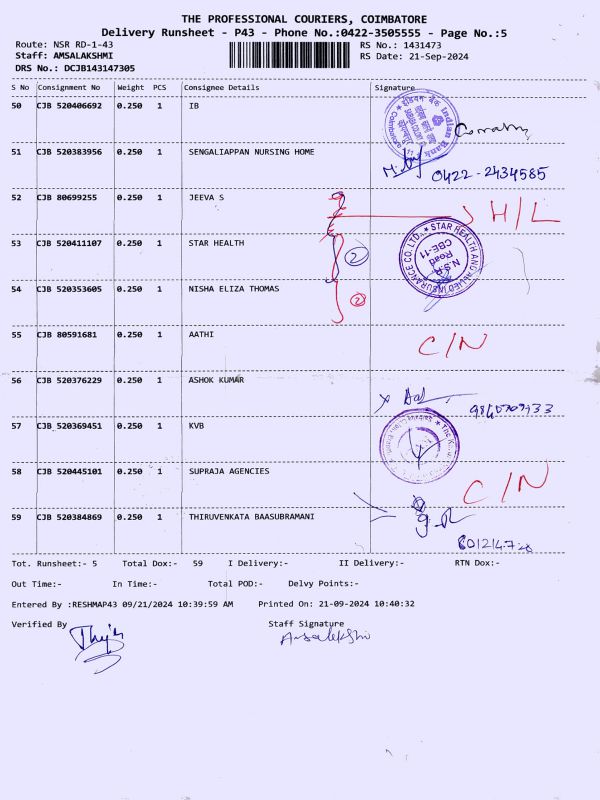 THE PROFESSIONAL COURIERS, COIMBATORE
Delivery Runsheet - P43 - Phone No.:0422-3505555 - Page No.:5
Route: NSR RD-1-43
RS No.: 1431473
Staff: AMSALAKSHMI
RS Date: 21-Sep-2024
DRS No.: DCJB143147305
S No Consignment No Weight PCS Consignee Details Signature
50 CJB 520406692 0.250 1 IB
Indian Bank
51 CJB 520383956 0.250 1 SENGALIAPPAN NURSING HOME
0422-2434585
52 CJB 80699255 0.250 1 JEEVA S
H/L
53 CJB 520411107 0.250 1 STAR HEALTH
2
STAR HEALTH AND ALLIED INSURANCE CO. LTD.
N.S.R. Road CBE-11
54 CJB 520353605 0.250 1 NISHA ELIZA THOMAS
2
55 CJB 80591681 0.250 1 AATHI
C/N
56 CJB 520376229 0.250 1 ASHOK KUMAR
57 CJB 520369451 0.250 1 KVB
58 CJB 520445101 0.250 1 SUPRAJA AGENCIES
C/N
59 CJB 520384869 0.250 1 THIRUVENKATA BAASUBRAMANI
Tot. Runsheet:- 5 Total Dox:- 59 I Delivery:- II Delivery:- RTN Dox:-
Out Time:- In Time:- Total POD:- Delvy Points:-
Entered By :RESHMAP43 09/21/2024 10:39:59 AM Printed On: 21-09-2024 10:40:32
Verified By Staff Signature